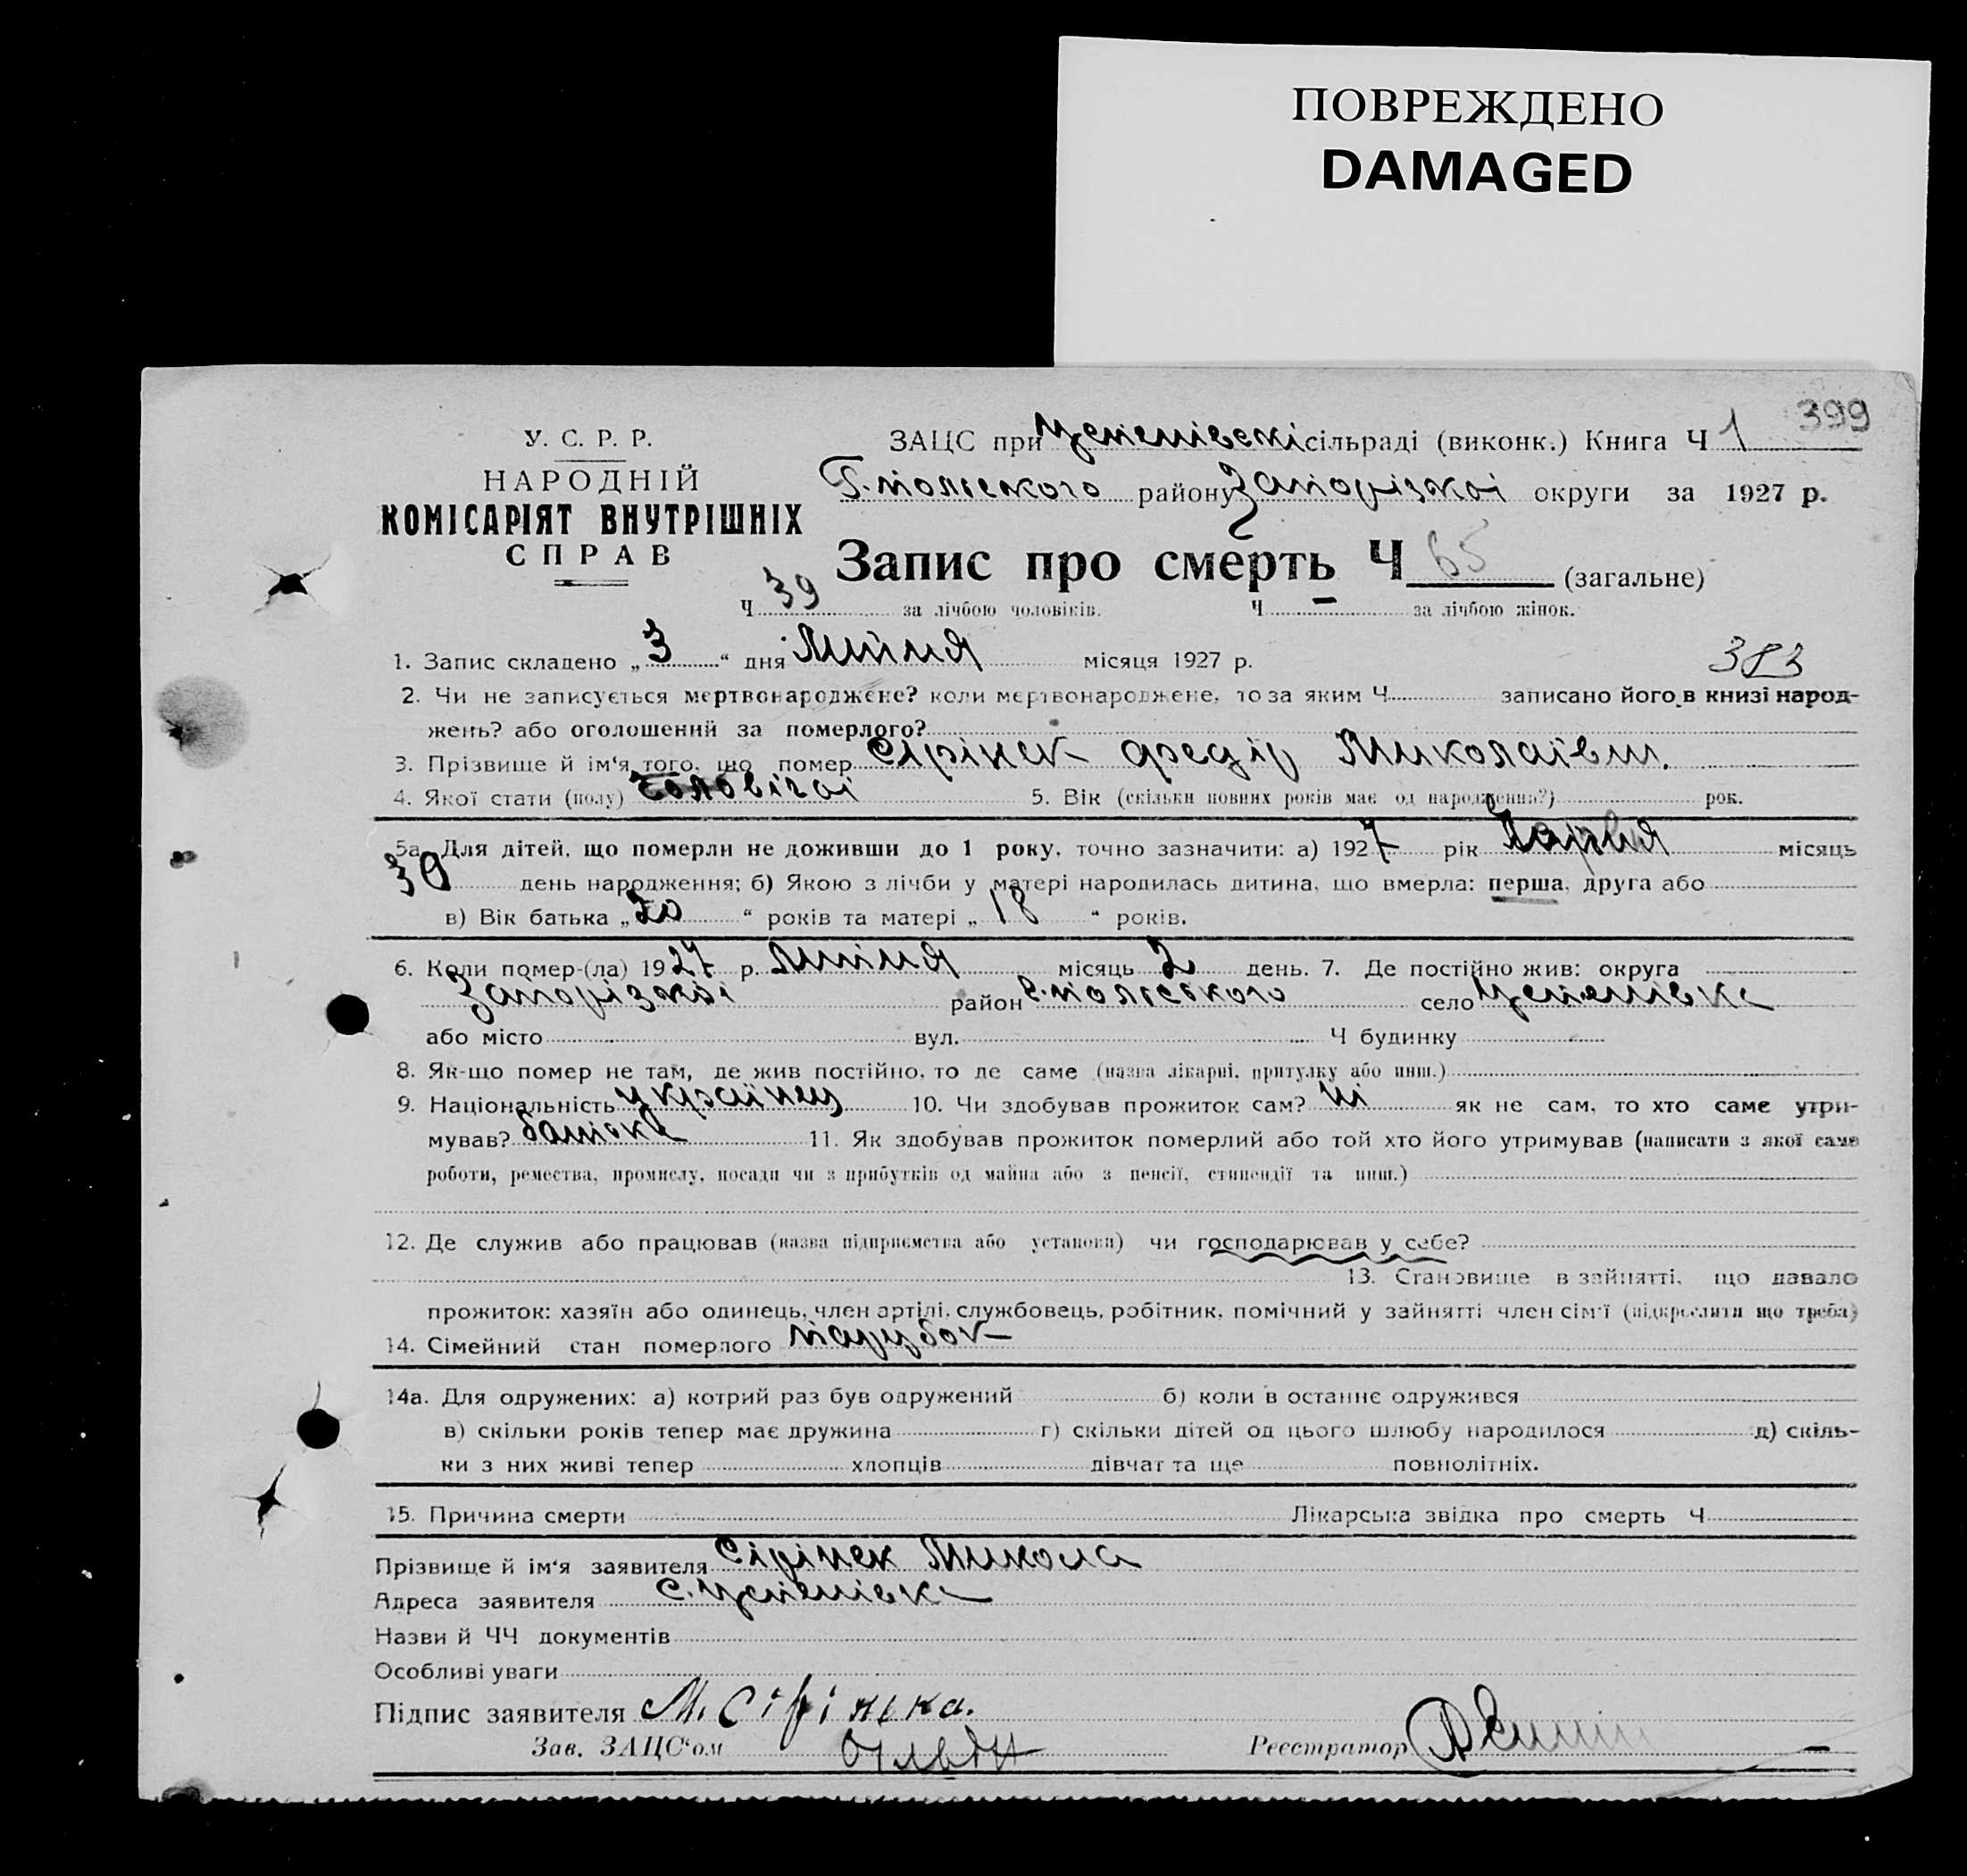 ПОВРЕЖДЕНО
DAMAGED
399
У. С. Р. Р.
НАРОДНІЙ
КОМІСАРІЯТ ВНУТРІШНІХ
СПРАВ
ЗАЦС при Успенівскі сільраді (виконк.) Книга Ч 1
Г.польского району Запорізкої округи за 1927 р.
Запис про смерть Ч 65 (загальне)
Ч 39 за лічбою чоловіків. Ч — за лічбою жінок.
1. Запис складено „ 3 “ дня Липня місяця 1927 р.
383
2. Чи не записується мертвонароджене? коли мертвонароджене, то за яким Ч записано його в книзі народ-
жень? або оголошений за померлого?
3. Прізвище й ім‘я того, що помер Сірінек Федір Миколаівич.
4. Якої стати (полу) чоловічої 5. Вік (скільки повних років має од народження?) рок.
5а. Для дітей, що померли не доживши до 1 року, точно зазначити: а) 1927 рік місяць
30 день народження; б) Якою з лічби у матері народилась дитина, що вмерла: перша, друга або
в) Вік батька „ 20 “ років та матері „ 18 “ років.
6. Коли помер-(ла) 1927 р. Липня місяць 2 день. 7. Де постійно жив: округа
Запорізкої район Г.польського село Успенівка
або місто вул. Ч будинку
8. Як-що помер не там, де жив постійно, то де саме (назва лікарні, притулку або инш.)
9. Національність українец 10. Чи здобував прожиток сам? ні як не сам, то хто саме утри-
мував? батько 11. Як здобував прожиток померлий або той хто його утримував (написати з якої саме
роботи, ремества, промислу, посади чи з прибутків од майна або з пенсії, стипендії та инш.)
12. Де служив або працював (назва підприємства або установи) чи господарював у себе?
13. Становище в зайнятті, що давало
прожиток: хазяїн або одинець, член артілі, службовець, робітник, помічний у зайнятті член сім‘ї (підкреслити що треба)
14. Сімейний стан померлого парубок
14а. Для одружених: а) котрий раз був одружений б) коли в останнє одружився
в) скільки років тепер має дружина г) скільки дітей од цього шлюбу народилося д) скіль-
ки з них живі тепер хлопців дівчат та ще повнолітніх.
15. Причина смерти Лікарська звідка про смерть Ч
Прізвище й ім‘я заявителя Сірінек Микола
Адреса заявителя с. Успенівка
Назви й ЧЧ документів
Особливі уваги
Підпис заявителя М. Сірінька.
Зав. ЗАЦС‘ом Реєстратор